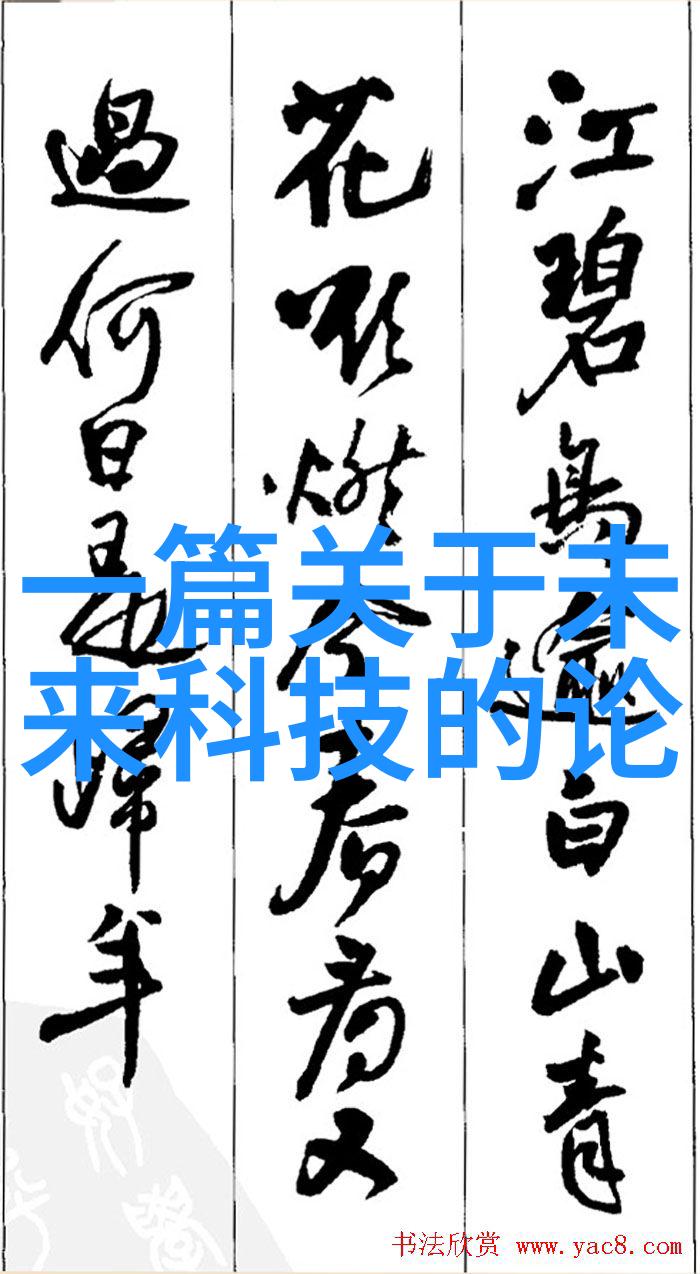 江碧鳥逾白山青
花欲燃今春看又
過何日是歸年
一篇关于未
来科技的论
书法欣赏 www.yac8.com